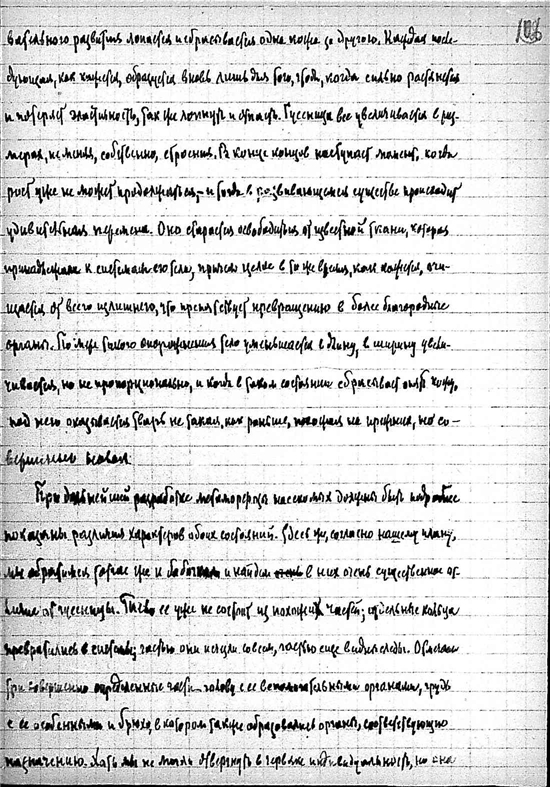 вательного развития лопается и сбрасывается одна кожа за другою. Каждая после-
дующая, как кажется, образуется вновь лишь для того, чтобы, когда сильно растянется
и потеряет эластичность, так же лопнуть и отпасть. Гусеница все увеличивается в раз-
мерах, не меняя, собственно, строения. В конце концов наступает момент, когда
рост уже не может продолжаться, – и тогда в развивающемся существе происходит
удивительная перемена. Оно старается освободиться от известной ткани, которая
принадлежала к системам его тела, причем целое в то же время, как кажется, очи-
щается от всего излишнего, что препятствует превращению в более благородные
органы. По мере такого опорожнения тело уменьшается в длину, в ширину увели-
чивается, но не пропорционально, и когда в таком состоянии сбрасывает опять кожу,
под него оказывается тварь не такая, как раньше, похожая на прежних, но со-
вершенно новая
При дальнейшей разработке метаморфозы насекомых должны быть подробнее
показаны различия характеров обоих состояний. Здесь же, согласно нашему плану,
мы обратимся сейчас же к бабочкам и найдем в них очень существенное от-
личие от гусеницы. Тело ее уже не состоит из похожих частей; отдельные кольца
превратились в системы; частью они исчезли совсем, частью еще видны следы. Отмечаем
три совершенно определенные части – голову с ее вспомогательными органами, грудь
с ее особенными и брюхо, в котором также образовались органы, соответствующие
назначению. Хоть мы не могли отвергнуть в червяке индивидуальность, но она